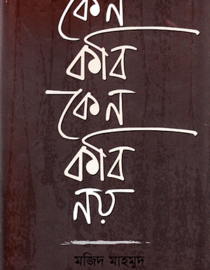 কেন
কবি
কেন
কবি
নয়
মজিদ মাহমুদ